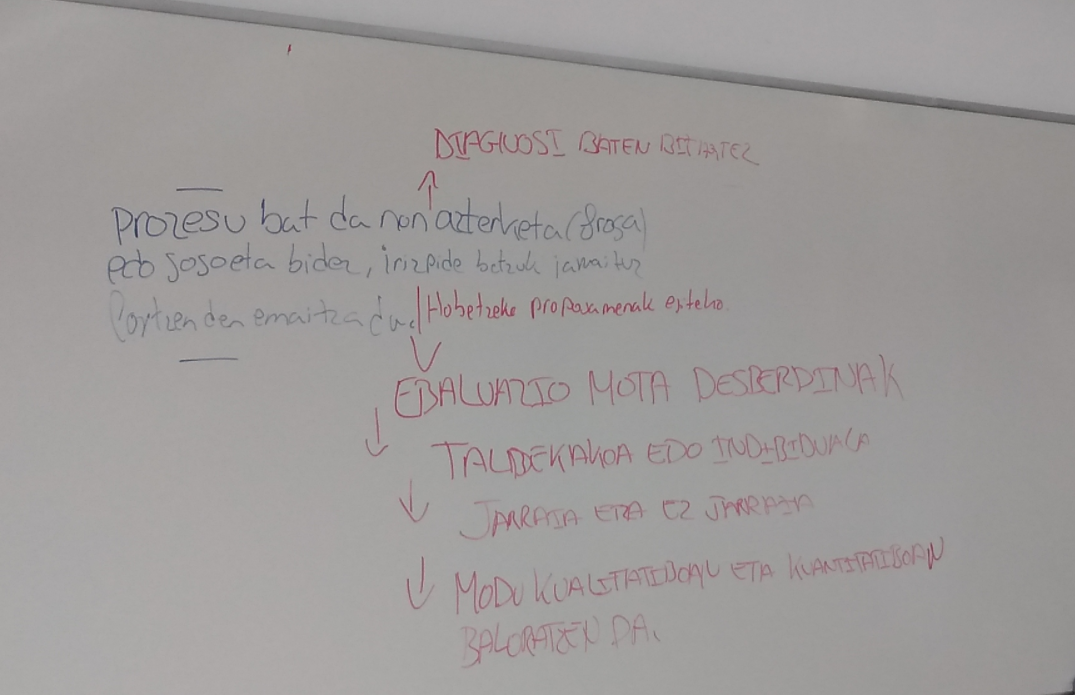 DIAGNOSI BATEN BITARTEZ
Prozesu bat da non azterketa (froga)
edo jasoeta bidez, irizpide batzuk jarraituz
lortzen den emaitza da. Hobetzeko proposamenak
EBALUAZIO MOTA DESBERDINAK
TALDEKAKOA EDO INDIBIDUALA
JARRAIA ETA EZ JARRAIA
MODU KUALITATIBOAN ETA KUANTITATIBOAN
BALORATZEN DA.